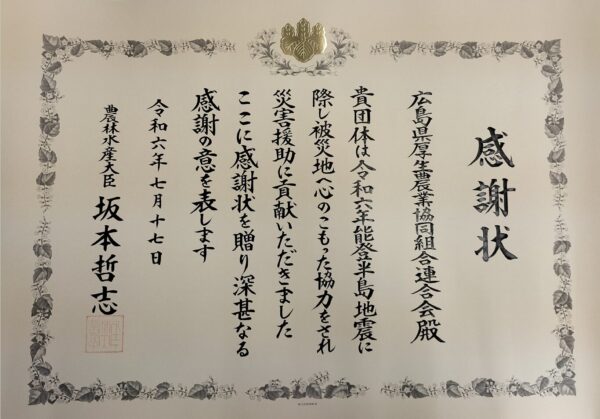 感謝状
広島県厚生農業協同組合連合会殿
貴団体は令和六年能登半島地震に
際し被災地へ心のこもった協力をされ
災害援助に貢献いただきました
ここに感謝状を贈り深甚なる
感謝の意を表します
令和六年七月十七日
農林水産大臣 坂本哲志